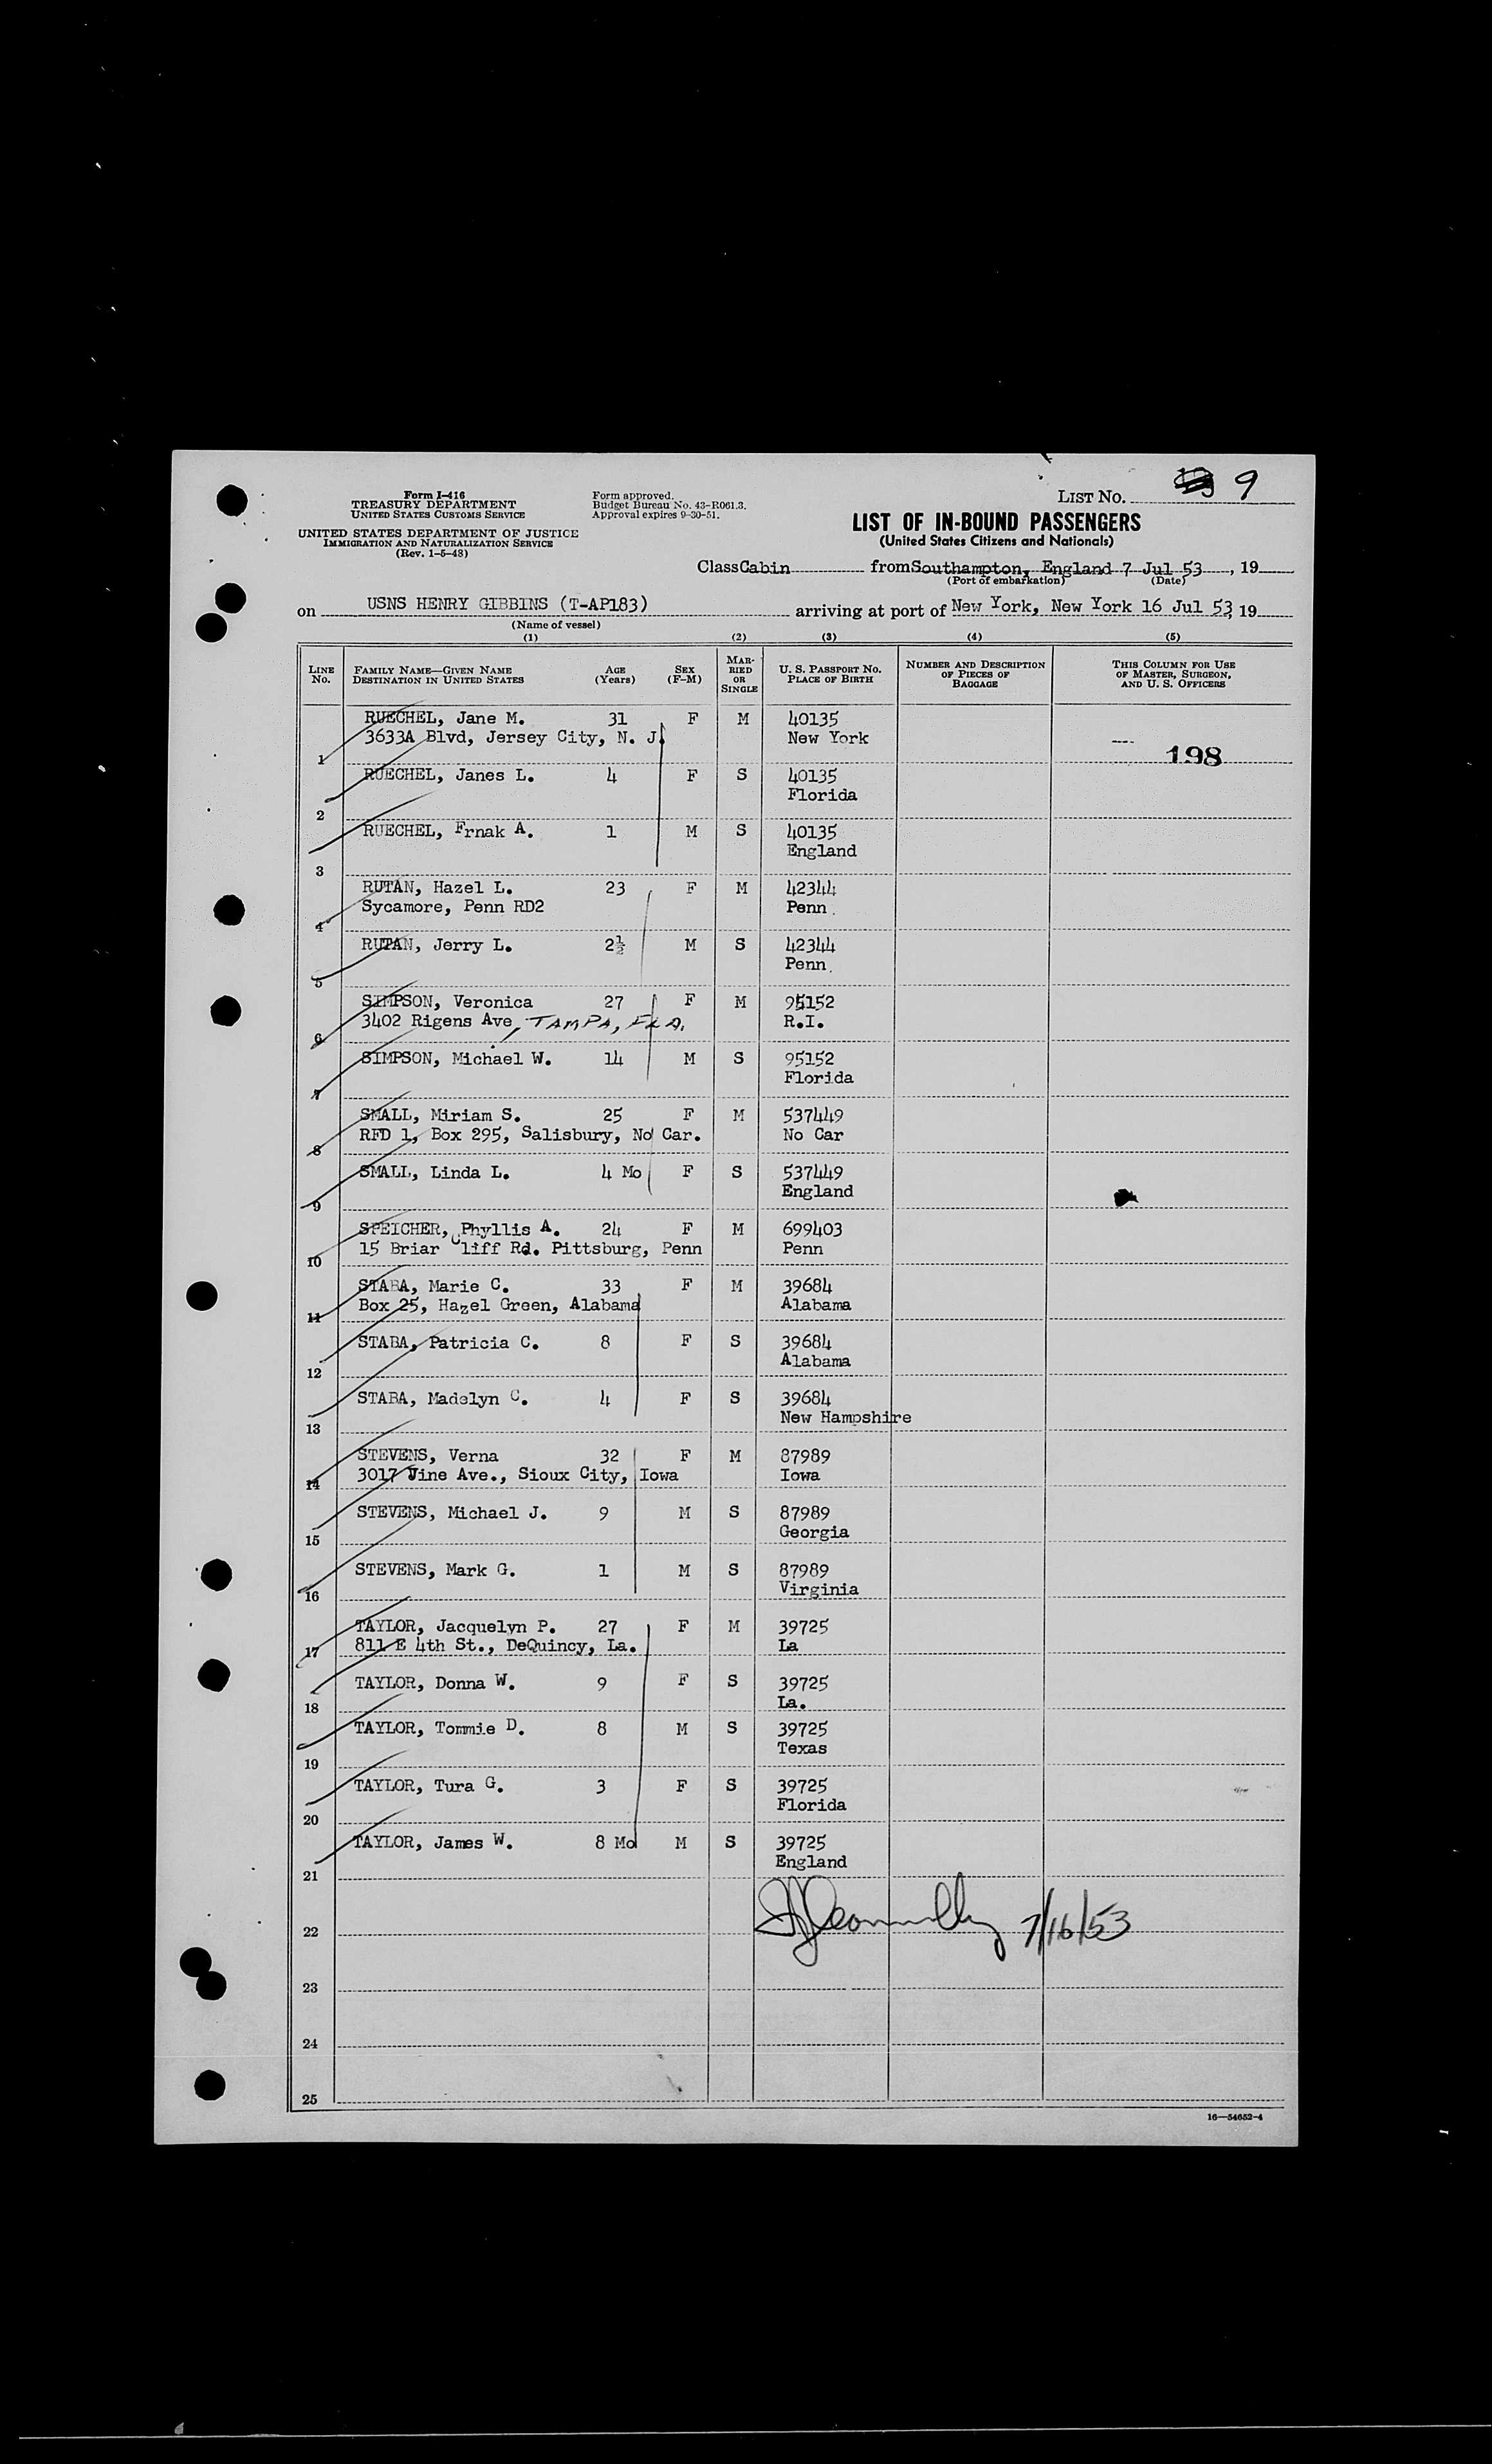 Form I-416
TREASURY DEPARTMENT
UNITED STATES CUSTOMS SERVICE
UNITED STATES DEPARTMENT OF JUSTICE
IMMIGRATION AND NATURALIZATION SERVICE
(Rev. 1-5-48)
Form approved.
Budget Bureau No. 43-R061.3.
Approval expires 9-30-51.
LIST NO. 9
LIST OF IN-BOUND PASSENGERS
(United States Citizens and Nationals)
Class Cabin from Southampton, England 7 Jul 53, 19
(Port of embarkation) (Date)
on USNS HENRY GIBBINS (T-AP183) arriving at port of New York, New York 16 Jul 53, 19
(Name of vessel)
(1) (2) (3) (4) (5)
LINE NO. FAMILY NAME—GIVEN NAME DESTINATION IN UNITED STATES AGE (Years) SEX (F-M) MARRIED OR SINGLE U. S. PASSPORT NO. PLACE OF BIRTH NUMBER AND DESCRIPTION OF PIECES OF BAGGAGE THIS COLUMN FOR USE OF MASTER, SURGEON, AND U. S. OFFICERS
RUECHEL, Jane M. 31 F M 40135
3633A Blvd, Jersey City, N. J. New York
1 198
RUECHEL, Janes L. 4 F S 40135
Florida
2
RUECHEL, Frnak A. 1 M S 40135
England
3
RUTAN, Hazel L. 23 F M 42344
Sycamore, Penn RD2 Penn.
4
RUTAN, Jerry L. 2½ M S 42344
Penn.
5
SIMPSON, Veronica 27 F M 95152
3402 Rigens Ave, TAMPA, FLA. R.I.
6
SIMPSON, Michael W. 14 M S 95152
Florida
7
SMALL, Miriam S. 25 F M 537449
RFD 1, Box 295, Salisbury, No Car. No Car
8
SMALL, Linda L. 4 Mo F S 537449
England
9
SPEICHER, Phyllis A. 24 F M 699403
15 Briar Cliff Rd. Pittsburg, Penn Penn
10
STABA, Marie C. 33 F M 39684
Box 25, Hazel Green, Alabama Alabama
11
STABA, Patricia C. 8 F S 39684
Alabama
12
STABA, Madelyn C. 4 F S 39684
New Hampshire
13
STEVENS, Verna 32 F M 87989
3017 Vine Ave., Sioux City, Iowa Iowa
14
STEVENS, Michael J. 9 M S 87989
Georgia
15
STEVENS, Mark G. 1 M S 87989
Virginia
16
TAYLOR, Jacquelyn P. 27 F M 39725
811 E 4th St., DeQuincy, La. La
17
TAYLOR, Donna W. 9 F S 39725
La.
18
TAYLOR, Tommie D. 8 M S 39725
Texas
19
TAYLOR, Tura G. 3 F S 39725
Florida
20
TAYLOR, James W. 8 Mo M S 39725
England
21
7/16/53
22
23
24
25
16—54652-4